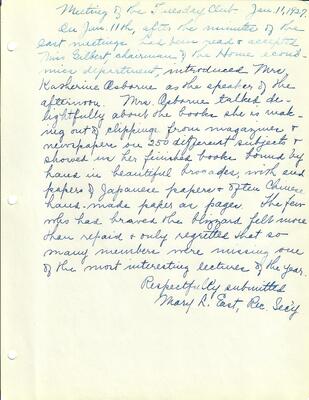 Meeting of the Tuesday Club Jan. 11, 1927.
On Jan. 11th, after the minutes of the
last meetings had been read & accepted
Miss Gilbert, chairman of the Home econo-
mics department, introduced Mrs.
Katherine Osborne as the speaker of the
afternoon. Mrs. Osborne talked de-
lightfully about the books she is mak-
ing out of clippings from magazines &
newspapers on 250 different subjects &
showed us her finished books bound by
hand in beautiful brocades, with end
papers of Japanese papers & often Chinese
hand-made paper as pages. The few
who had braved the blizzard felt more
than repaid & only regretted that so
many members were missing one
of the most interesting lectures of the year.
Respectfully submitted
Mary R. East, Rec. Sec'y